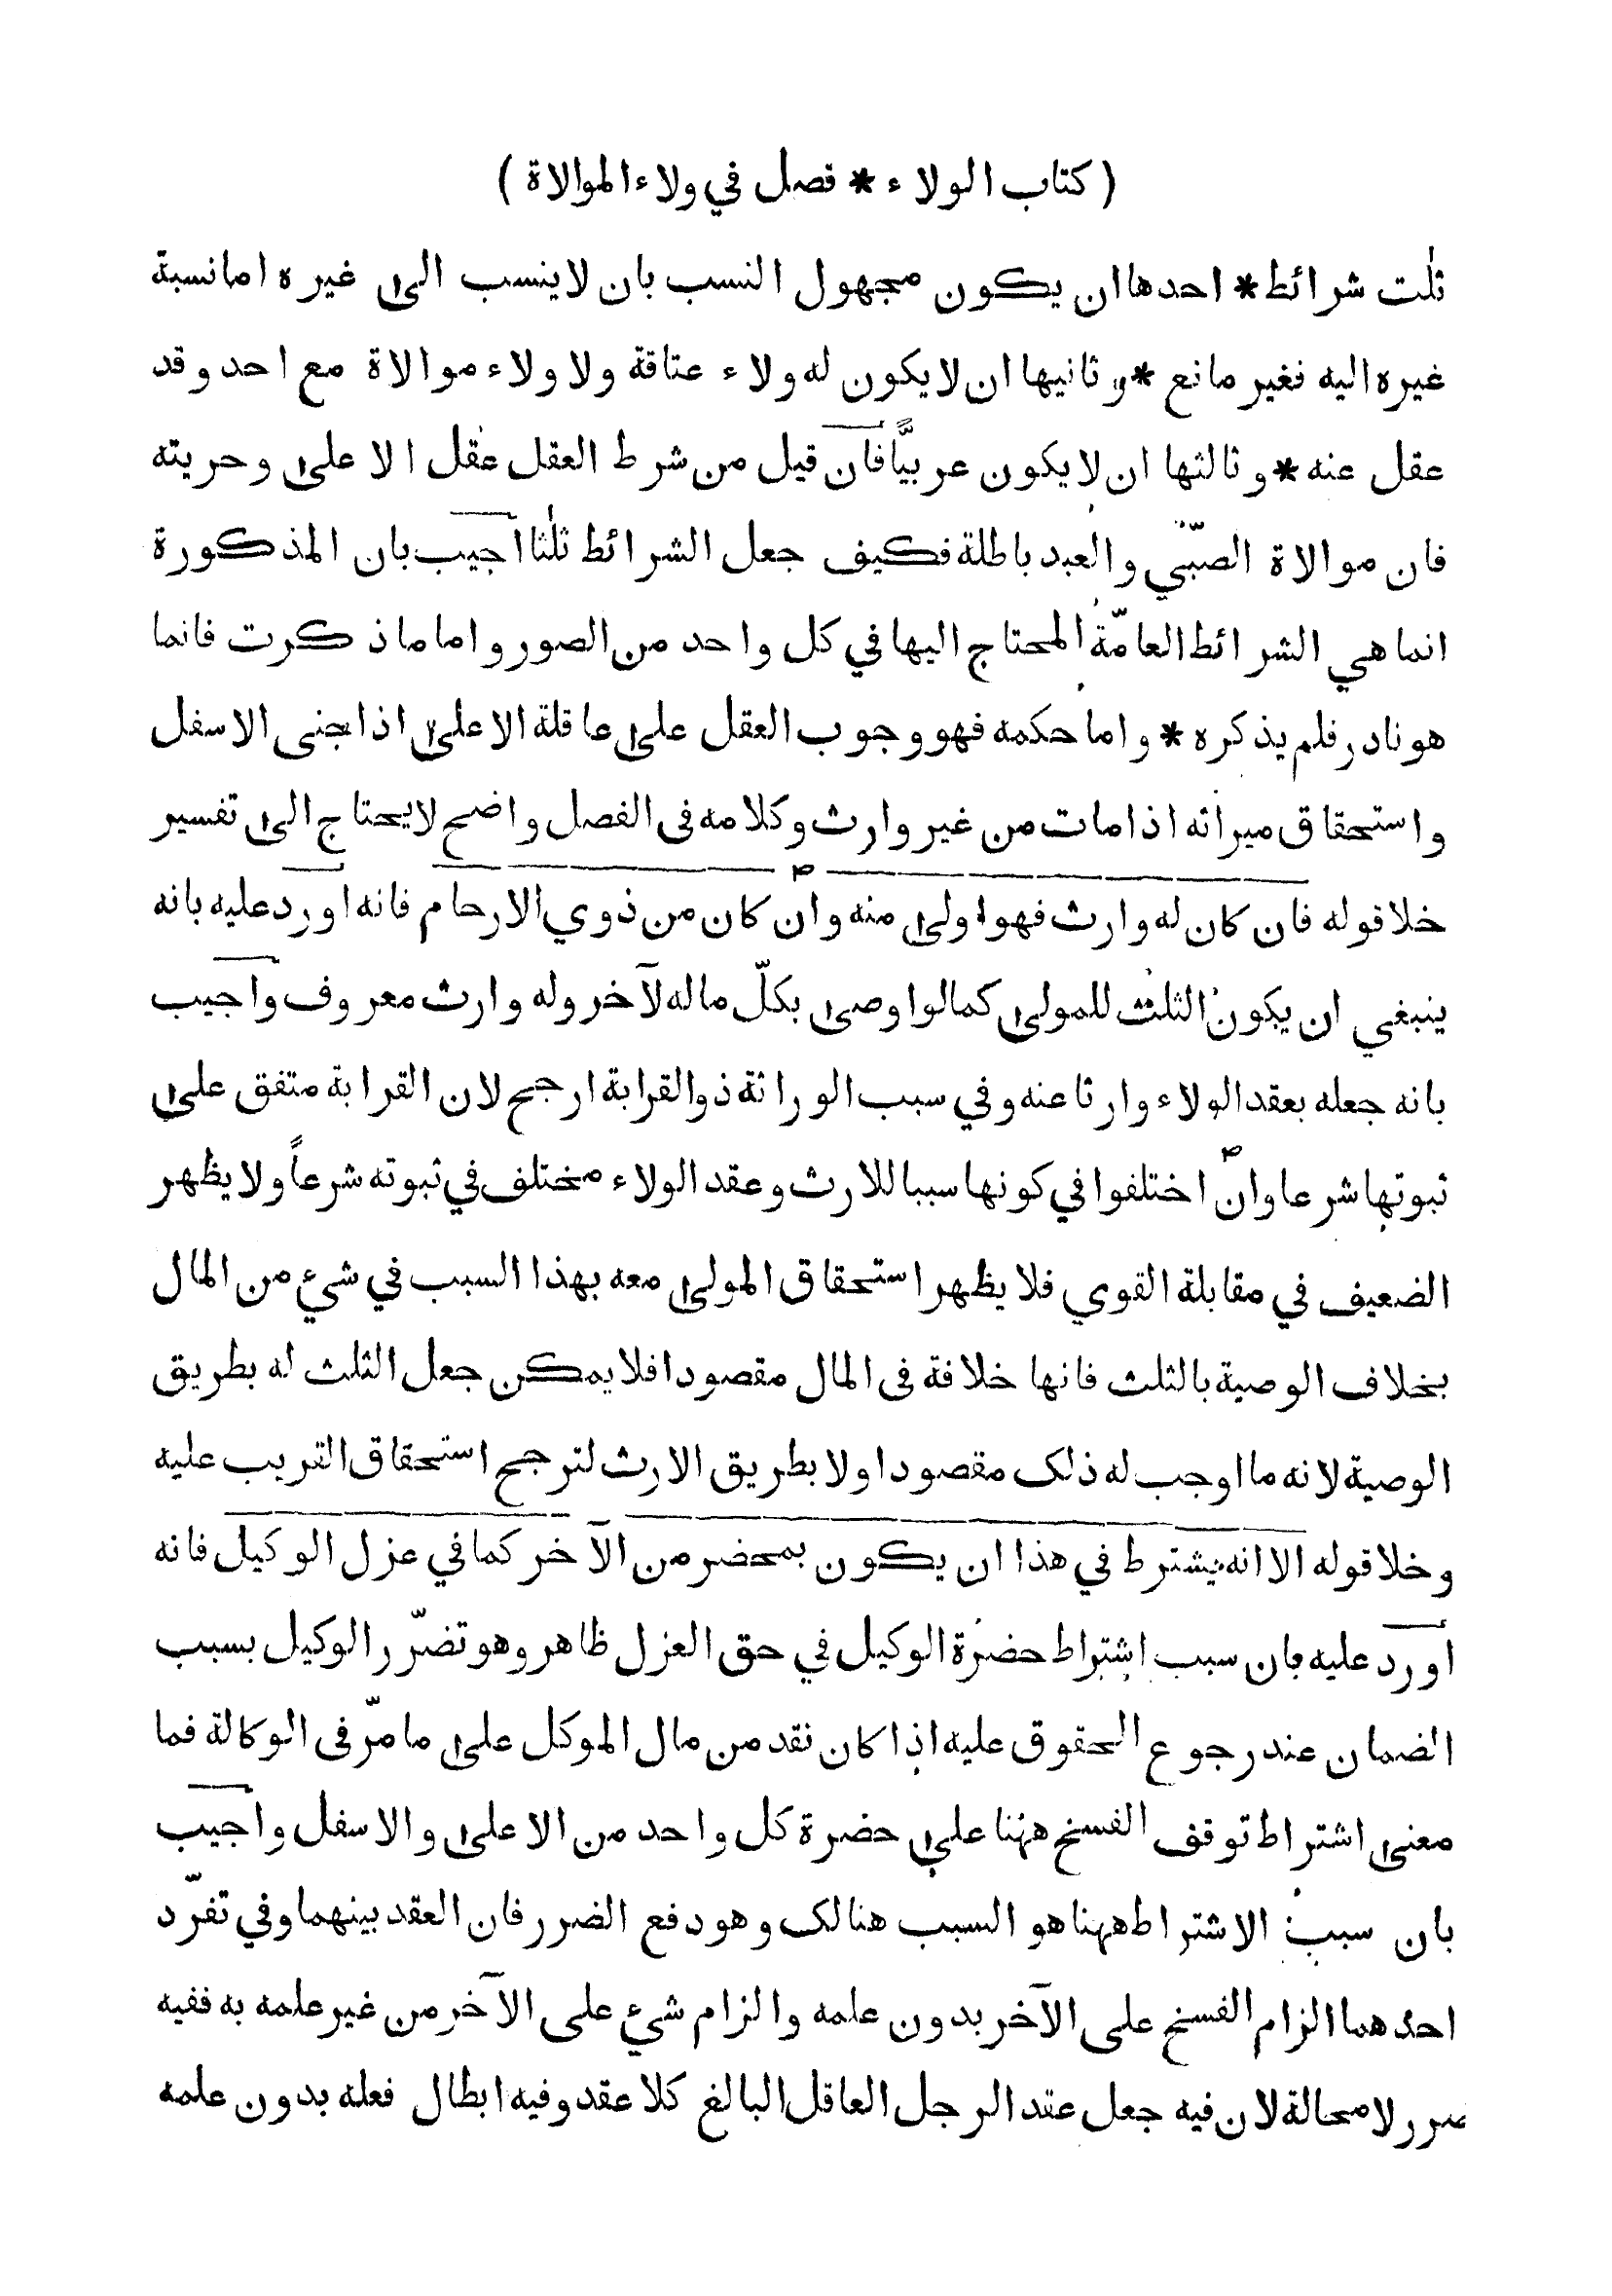 ( كتاب الولاء * فصل في ولاء الموالاة )
ثلٰت شرائط * احدها ان يكون مجهول النسب بان لا ينسب الى غيره اما نسبة
غيره اليه فغير مانع * و ثانيها ان لا يكون له ولاء عتاقة ولا ولاء موالاة مع احد وقد
عقل عنه * وثالثها ان لا يكون عربيًّا فان قيل من شرط العقل عقل الاعلى وحريته
فان موالاة الصبّي والعبد باطلة فكيف جعل الشرائط ثلٰثا اجيب بان المذكورة
انما هي الشرائط العامّة المحتاج اليها في كل واحد من الصور واما ما ذكرت فانما
هو نادر فلم يذكره * واما حكمه فهو وجوب العقل على عاقلة الاعلى اذا جنى الاسفل
واستحقاق ميراثه اذا مات من غير وارث وكلامه فى الفصل واضح لا يحتاج الى تفسير
خلا قوله فان كان له وارث فهو اولى منه وان كان من ذوي الارحام فانه اورد عليه بانه
ينبغي ان يكون الثلث للمولى كما لو اوصى بكلّ ماله لآخر وله وارث معروف واجيب
بانه جعله بعقد الولاء وارثا عنه وفي سبب الوراثة ذو القرابة ارجح لان القرابة متفق على
ثبوتها شرعا وان اختلفوا في كونها سببا للارث وعقد الولاء مختلف في ثبوته شرعاً ولا يظهر
الضعيف في مقابلة القوي فلا يظهر استحقاق المولى معه بهذا السبب في شيء من المال
بخلاف الوصية بالثلث فانها خلافة فى المال مقصودا فلا يمكن جعل الثلث له بطريق
الوصية لانه ما اوجب له ذلك مقصودا ولا بطريق الارث لترجح استحقاق القريب عليه
وخلا قوله الا انه يشترط في هذا ان يكون بمحضر من الآخر كما في عزل الوكيل فانه
اورد عليه بان سبب اشتراط حضرة الوكيل في حق العزل ظاهر وهو تضرّر الوكيل بسبب
الضمان عند رجوع الحقوق عليه اذا كان نقد من مال الموكل على ما مرّ فى الوكالة فما
معنى اشتراط توقف الفسخ ههنا على حضرة كل واحد من الاعلى والاسفل واجيب
بان سبب الاشتراط ههنا هو السبب هنالك وهو دفع الضرر فان العقد بينهما وفي تفرّد
احدهما الزام الفسخ على الآخر بدون علمه والزام شيء على الآخر من غير علمه به ففيه
ضرر لا محالة لان فيه جعل عقد الرجل العاقل البالغ كلا عقد وفيه ابطال فعله بدون علمه